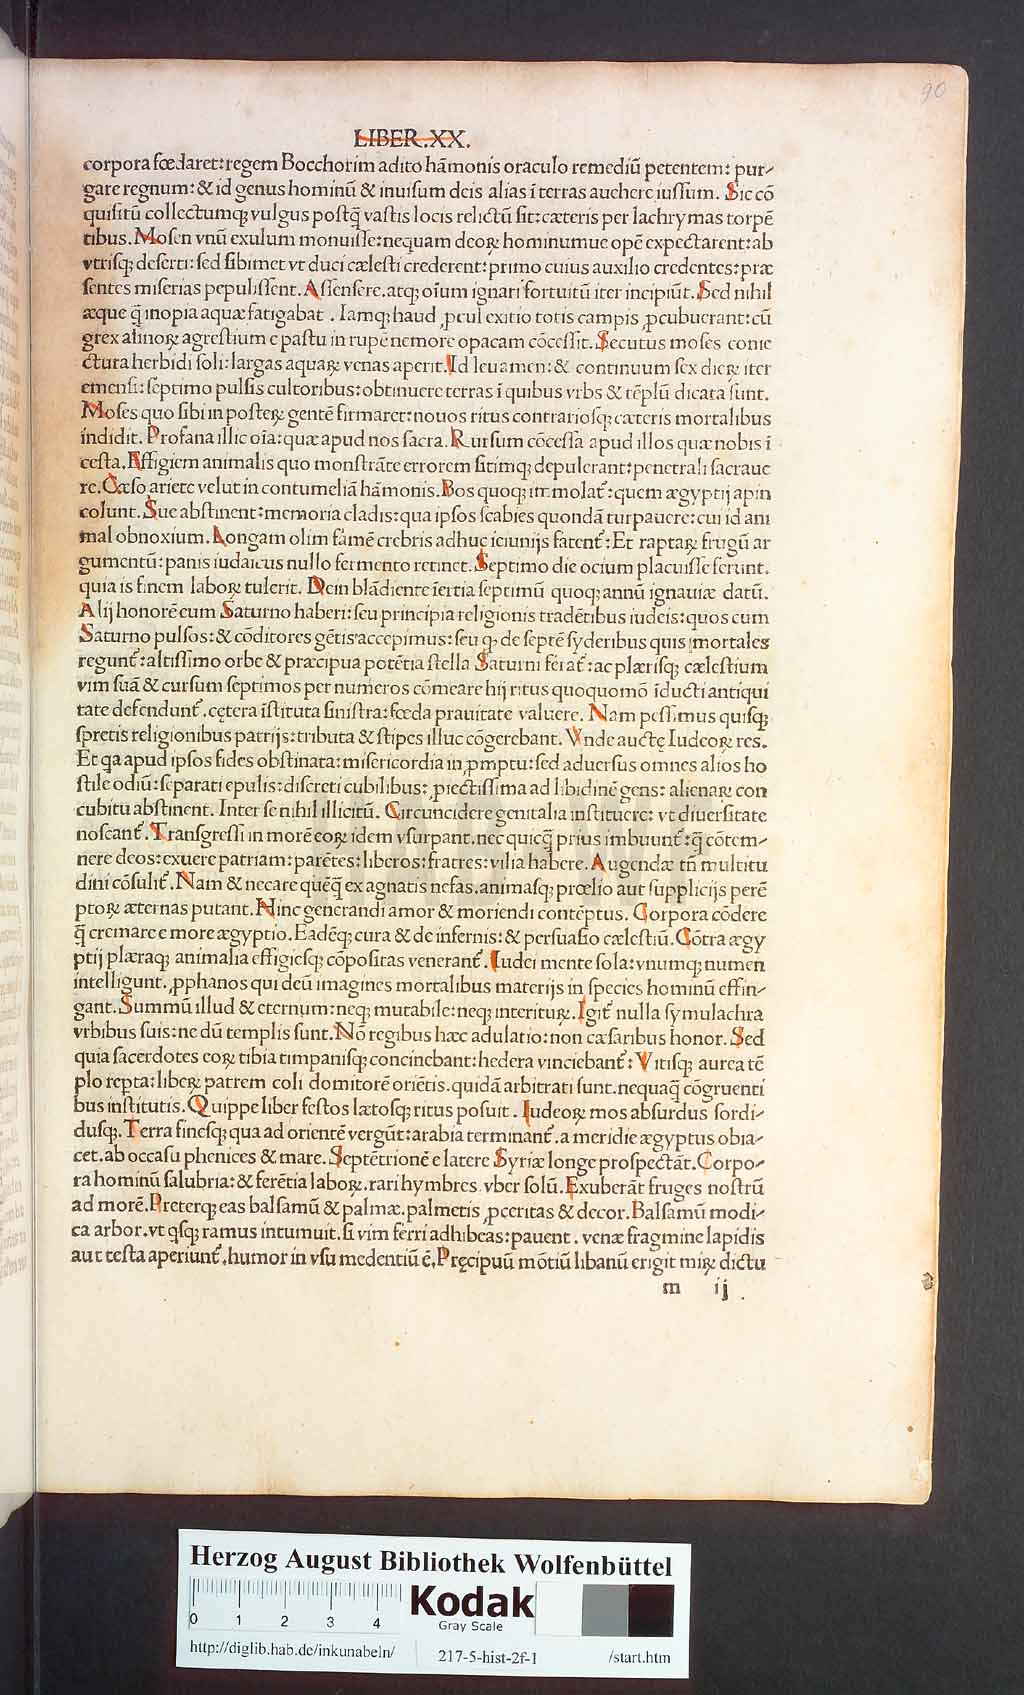 90
LIBER.XX.
corpora fœdaret: regem Bocchorim adito hāmonis oraculo remediū petentem: pur-
gare regnum: & id genus hominū & inuisum deis alias ī terras auehere iussum. Sic cō
quisitū collectumqꝫ vulgus postq̄ vastis locis relictū sit: cæteris per lachrymas torpē
tibus. Mosen vnū exulum monuisse: nequam deoꝝ hominumue opē expectarent: ab
vtrisqꝫ deserti: sed sibimet vt duci cælesti crederent: primo cuius auxilio credentes: præ
sentes miserias pepulissent. Assensere. atqꝫ oīum ignari fortuitū iter incipiūt. Sed nihil
æque q̄ inopia aquæ fatigabat. Iamqꝫ haud ꝓcul exitio totis campis ꝓcubuerant: cū
grex asinoꝝ agrestium e pastu in rupē nemore opacam cōcessit. Secutus moses conie
ctura herbidi soli: largas aquaꝝ venas aperit. Id leuamen: & continuum sex dieꝝ iter
emensi: septimo pulsis cultoribus: obtinuere terras ī quibus vrbs & tēplū dicata sunt.
Moses quo sibi in posteꝝ gentē firmaret: nouos ritus contrariosqꝫ cæteris mortalibus
indidit. Profana illic oīa: quæ apud nos sacra. Rursum cōcessa apud illos quæ nobis ī
cesta. Effigiem animalis quo monstrāte errorem sitimqꝫ depulerant: penetrali sacraue
re. Cæso ariete velut in contumeliā hāmonis. Bos quoqꝫ immolat᷑: quem ægyptij apin
colunt. Sue abstinent: memoria cladis: qua ipsos scabies quondā turpauere: cui id ani
mal obnoxium. Longam olim famē crebris adhuc ieiunijs fatent᷑: Et raptaꝝ frugū ar
gumentū: panis iudaicus nullo fermento retinet. Septimo die ocium placuisse ferunt.
quia is finem laboꝝ tulerit. Dein blādiente īertia septimū quoqꝫ annū ignauiæ datū.
Alij honorē eum Saturno haberi: seu principia religionis tradētibus iudeis: quos cum
Saturno pulsos: & cōditores gētis accepimus: seu qꝫ de septē syderibus quis mortales
regunt᷑: altissimo orbe & præcipua potētia stella Saturni ferat᷑: ac plærisqꝫ cælestium
vim suā & cursum septimos per numeros cōmeare hij ritus quoquomō īducti antiqui
tate defendunt᷑. cętera īstituta sinistra: fœda prauitate valuere. Nam pessimus quisqꝫ
spretis religionibus patrijs: tributa & stipes illuc cōgerebant. Vnde auctę Iudeoꝝ res.
Et qa apud ipsos fides obstinata: misericordia in ꝓmptu: sed aduersus omnes alios ho
stile odiū: separati epulis: discreti cubilibus: ꝓiectissima ad libidinē gens: alienaꝝ con
cubitu abstinent. Inter se nihil illicitū. Circuncidere genitalia instituere: vt diuersitate
noscant᷑. Transgressi in morē eoꝝ idem vsurpant. nec quicq̄ prius imbuunt᷑: q̄ cōtem-
nere deos: exuere patriam: parētes: liberos: fratres: vilia habere. Augendæ tn̄ multitu
dini cōsulit᷑. Nam & necare quēqꝫ ex agnatis nefas. animasqꝫ prœlio aut supplicijs perē
ptoꝝ æternas putant. Hinc generandi amor & moriendi contēptus. Corpora cōdere
q̄ cremare e more ægyptio. Eadēqꝫ cura & de infernis: & persuasio cælestiū. Cōtra ægy
ptij plæraqꝫ animalia effigiesqꝫ cōpositas venerant᷑. Iudei mente sola: vnumqꝫ numen
intelligunt. ꝓphanos qui deū imagines mortalibus materijs in species hominū effin-
gant. Summū illud & eternum: neqꝫ mutabile: neqꝫ interituꝝ. Igit᷑ nulla symulachra
vrbibus suis: ne dū templis sunt. Nō regibus hæc adulatio: non cæsaribus honor. Sed
quia sacerdotes eoꝝ tibia timpanisqꝫ concinebant: hedera vinciebant᷑: Vitisqꝫ aurea tē
plo repta: libeꝝ patrem coli domitorē oriētis. quidā arbitrati sunt. nequaq̄ cōgruenti
bus institutis. Quippe liber festos lætosqꝫ ritus posuit. Iudeoꝝ mos absurdus sordi-
dusqꝫ. Terra finesqꝫ qua ad orientē vergūt: arabia terminant᷑. a meridie ægyptus obia-
cet. ab occasu phenices & mare. Septētrionē e latere Syriæ longe prospectāt. Corpo-
ra hominū salubria: & ferētia laboꝝ. rari hymbres vber solū. Exuberāt fruges nostrū
ad morē. Preterqꝫ eas balsamū & palmæ. palmetis ꝓceritas & decor. Balsamū modi-
ca arbor. vt qsqꝫ ramus intumuit. si vim ferri adhibeas: pauent. venæ fragmine lapidis
aut testa aperiunt᷑. humor in vsu medentiū ē. Pręcipuū mōtiū libanū erigit miꝝ dictu
m ij
Herzog August Bibliothek Wolfenbüttel
0 1 2 3 4
Kodak
Gray Scale
http://diglib.hab.de/inkunabeln/ 217-5-hist-2f-1 /start.htm